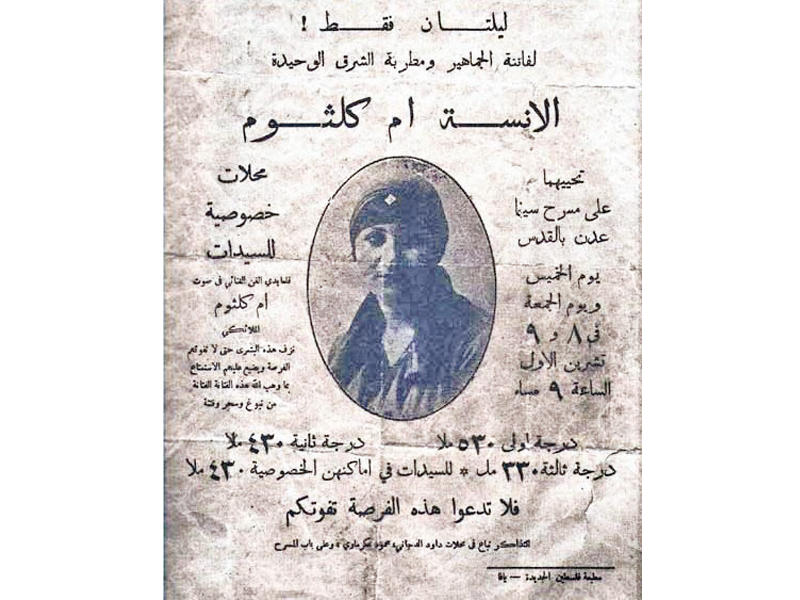 ليلتـــان فقـــط !
لفاتنة الجماهير ومطربة الشرق الوحيدة
الانســـة ام كلثـــوم
تحييهما
على مسرح سينما
عدن بالقدس
يوم الخميس
ويوم الجمعة
في ٨ و ٩
تشرين الاول
الساعة ٩ مساء
محلات
خصوصية
للسيدات
الفن الغنائي في صوت
ام كلثوم
الملائكي
نزف هذه البشرى حتى لا تفوتهم
الفرصة ويضيع عليهم الاستمتاع
بما وهب الله هذه الفنانة الفتانة
من نبوغ وسحر وفتنة
درجة اولى ٥٣٠ ملا درجة ثانية ٤٣٠ ملا
درجة ثالثة ٣٣٠ مل * للسيدات في اماكنهن الخصوصية ٤٣٠ ملا
فلا تدعوا هذه الفرصة تفوتكم
التذاكر تباع في محلات داود الدجاني، محمود عكرماوي، وعلى باب المسرح
مطبعة فلسطين الجديدة — يافا